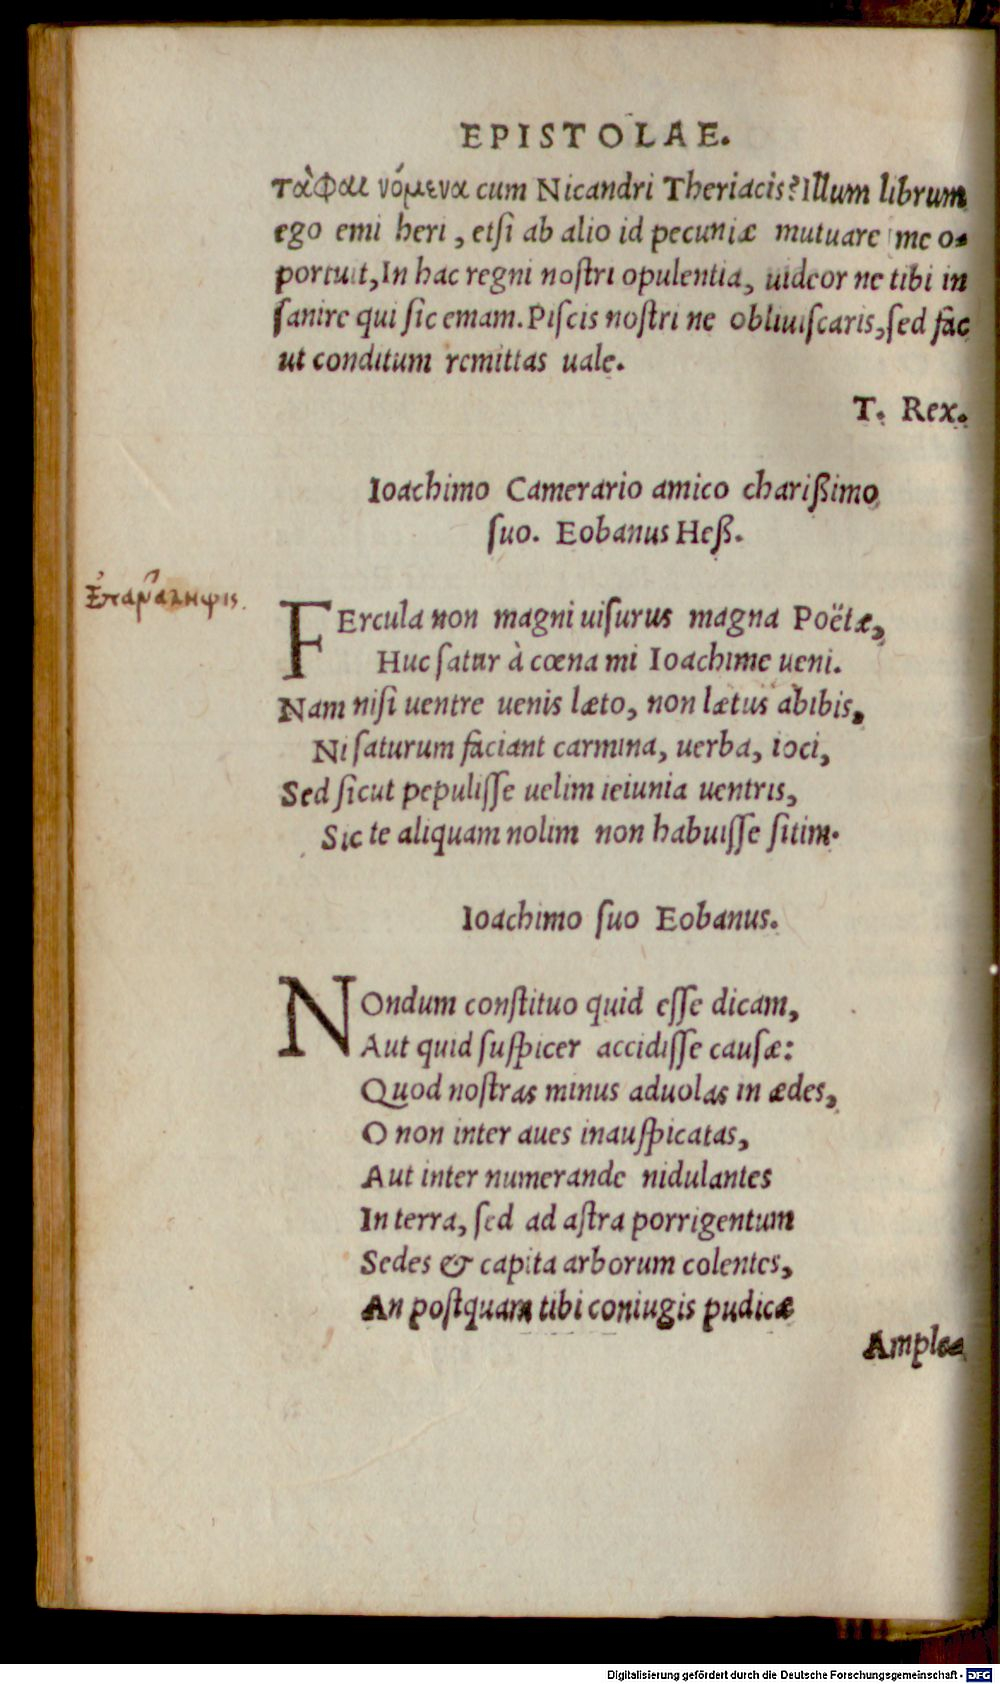 EPISTOLAE.
τὰφαι νόμενα cum Nicandri Theriacis? Illum librum
ego emi heri, etſi ab alio id pecuniæ mutuare me o-
portuit, In hac regni noſtri opulentia, uideor ne tibi in
ſanire qui ſic emam. Piſcis noſtri ne obliuiſcaris, ſed fac
ut conditum remittas uale.
T. Rex.
Ioachimo Camerario amico charißimo
ſuo. Eobanus Heß.
Ἐπανάληψις.
FErcula non magni uiſurus magna Poëtæ,
Huc ſatur à cœna mi Ioachime ueni.
Nam niſi uentre uenis læto, non lætus abibis,
Ni ſaturum faciant carmina, uerba, ioci,
Sed ſicut pepuliſſe uelim ieiunia uentris,
Sic te aliquam nolim non habuiſſe ſitim.
Ioachimo ſuo Eobanus.
NOndum conſtituo quid eſſe dicam,
Aut quid ſuſpicer accidiſſe cauſæ:
Quod noſtras minus aduolas in ædes,
O non inter aues inauſpicatas,
Aut inter numerande nidulantes
In terra, ſed ad aſtra porrigentum
Sedes & capita arborum colentes,
An poſtquam tibi coniugis pudicæ
Amplæ
Digitalisierung gefördert durch die Deutsche Forschungsgemeinschaft - DFG